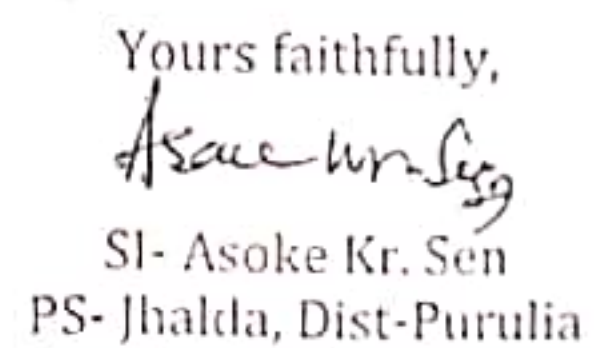 Yours faithfully,
Asoke Kr. Sen
SI- Asoke Kr. Sen
PS- Jhalda, Dist-Purulia